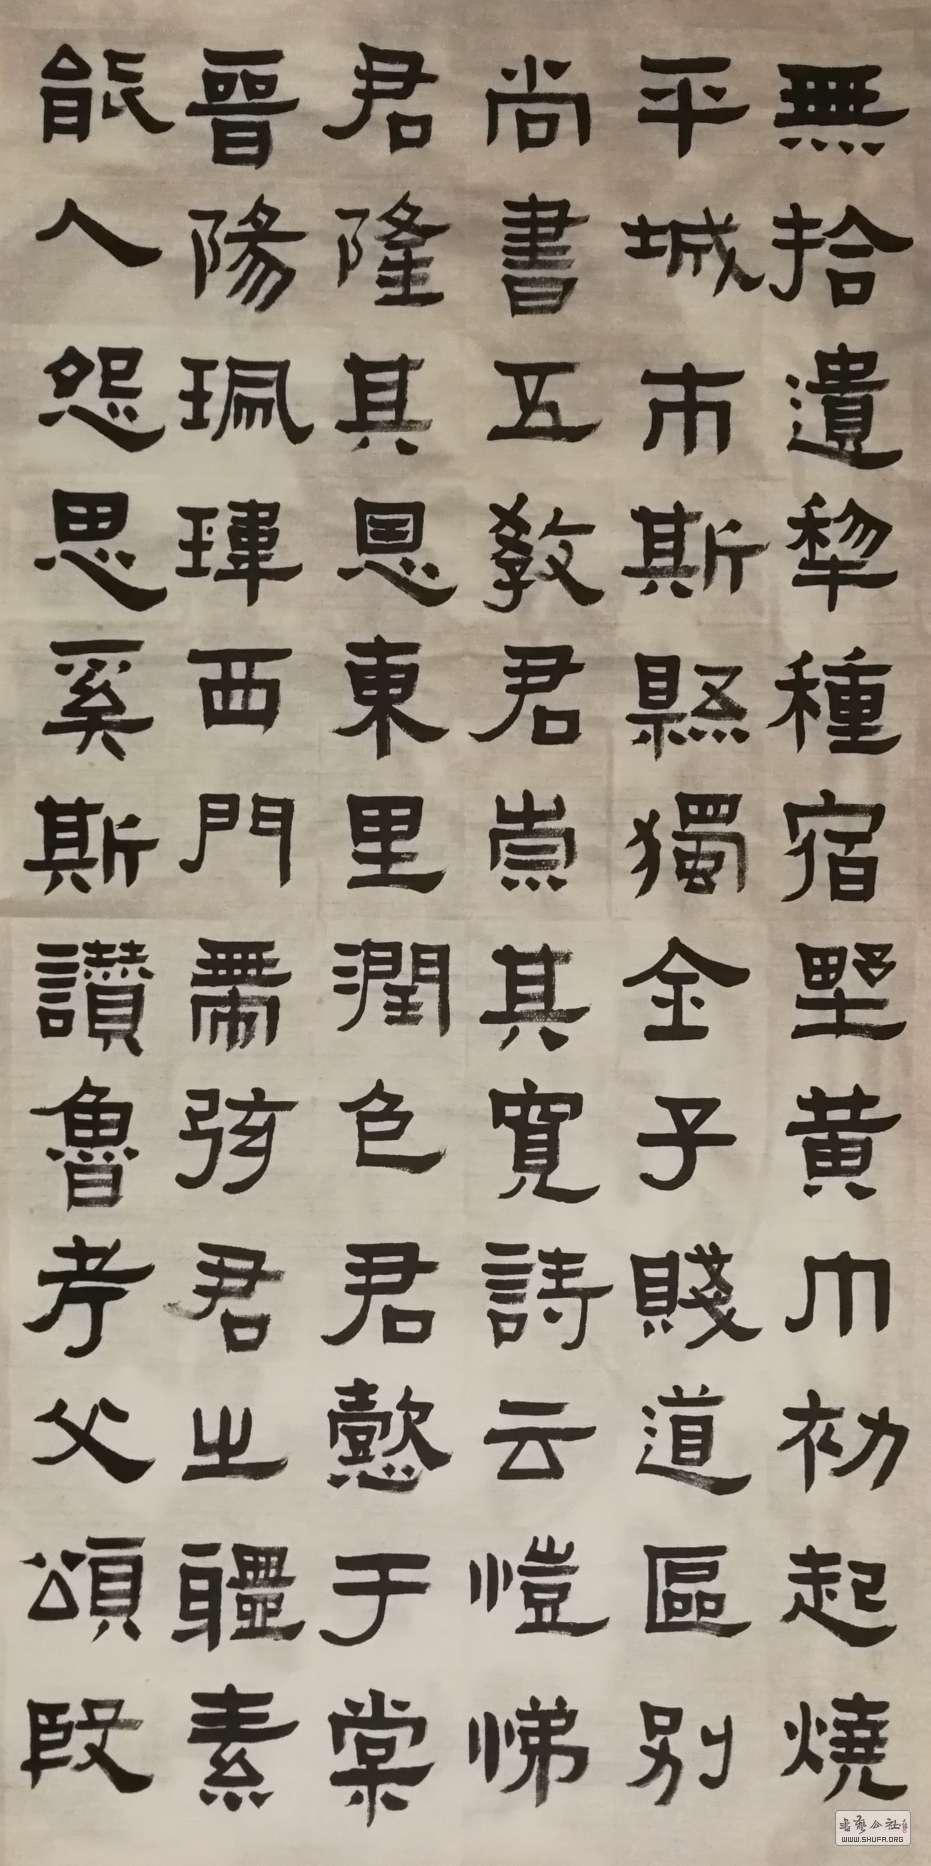 無拾遺犂種宿野黃巾初起燒
平城市斯縣獨全子賤道區別
尚書五教君崇其寬詩云愷悌
君隆其恩東里潤色君懿于棠
晉陽珮瑋西門帶弦君之軆素
能人怨思奚斯讚魯考父頌殷
WWW.SHUFA.ORG